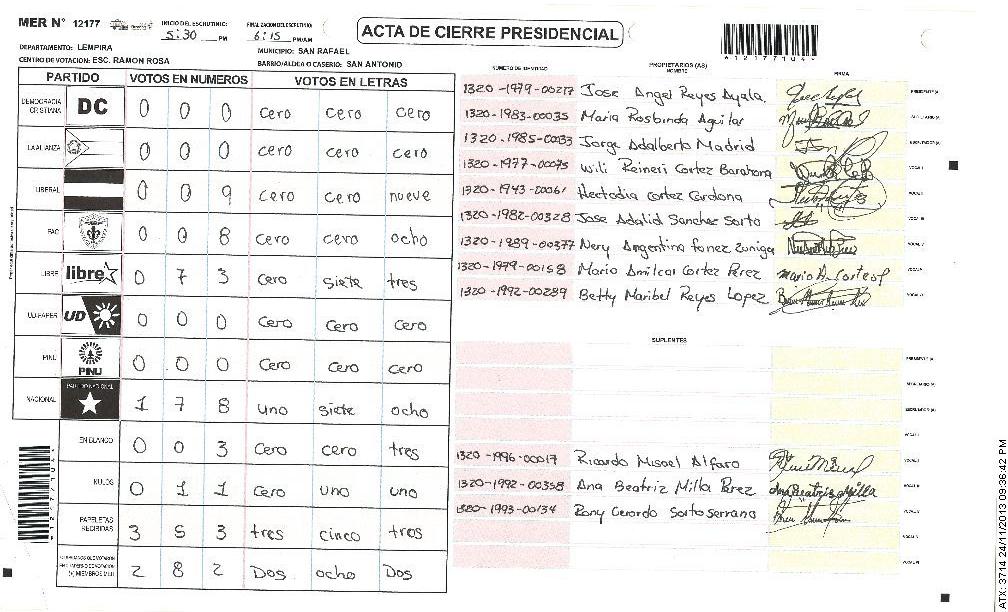 MER N° 12177
INICIO DEL ESCRUTINIO: 5:30 PM
FINALIZACION DEL ESCRUTINIO: 6:15 PM/AM
ACTA DE CIERRE PRESIDENCIAL
DEPARTAMENTO: LEMPIRA
MUNICIPIO: SAN RAFAEL
CENTRO DE VOTACION: ESC. RAMON ROSA
BARRIO/ALDEA O CASERIO: SAN ANTONIO
*12177104*
PARTIDO VOTOS EN NUMEROS VOTOS EN LETRAS
DEMOCRACIA CRISTIANA DC 0 0 0 Cero cero cero
LA ALIANZA 0 0 0 cero cero cero
LIBERAL 0 0 9 cero cero nueve
PAC 0 0 8 cero cero ocho
LIBRE libre 0 7 3 Cero siete tres
UD-FAPER UD 0 0 0 Cero Cero Cero
PINU PINU 0 0 0 Cero Cero cero
NACIONAL PARTIDO NACIONAL 1 7 8 uno siete ocho
EN BLANCO 0 0 3 Cero cero tres
NULOS 0 1 1 Cero uno uno
PAPELETAS RECIBIDAS 3 5 3 tres cinco tres
2 8 2 Dos ocho Dos
NUMERO DE IDENTIDAD PROPIETARIOS (AS) NOMBRE FIRMA
1320-1979-00217 Jose Angel Reyes Ayala
1320-1983-00035 Maria Rosbinda Aguilar
1320-1985-00033 Jorge Adalberto Madrid
1320-1977-00075 Wili Reineri Cortez Barahona
1320-1943-00061 Hectodia Cortez Cardona
1320-1982-00328 Jose Adalid Sanchez Sorto
1320-1989-00377 Nery Argentina Fonez Zuniga
1320-1979-00158 Mario Amilcar Cortez Perez
1320-1992-00289 Betty Maribel Reyes Lopez
SUPLENTES
1320-1996-00017 Ricardo Misael Alfaro
1320-1992-00358 Ana Beatriz Milla Perez
1320-1993-00134 Rony Gerardo Sorto Serrano
ATX: 3714 24/11/2013 09:36:42 PM